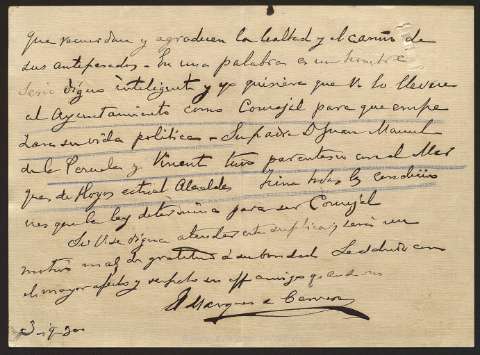 que recuerdan y agradecen la lealtad y el cariño de
sus antepasados - En una palabra es un hombre
serio digno inteligente y yo quisiera que V. lo llevara
al Ayuntamiento como Concejal para que empe
zara su vida politica - Su padre D. Juan Manuel
de la y Vincent tuvo parentesco con el Mar
ques de Hoyos actual Alcalde y reune todas las condicio
nes que la ley determina para ser Concejal
Si V. se digna atender esta suplica, será un
motivo mas de gratitud á su bondad. Le saluda con
el mayor afecto y respeto su affmo amigo
El Marques de